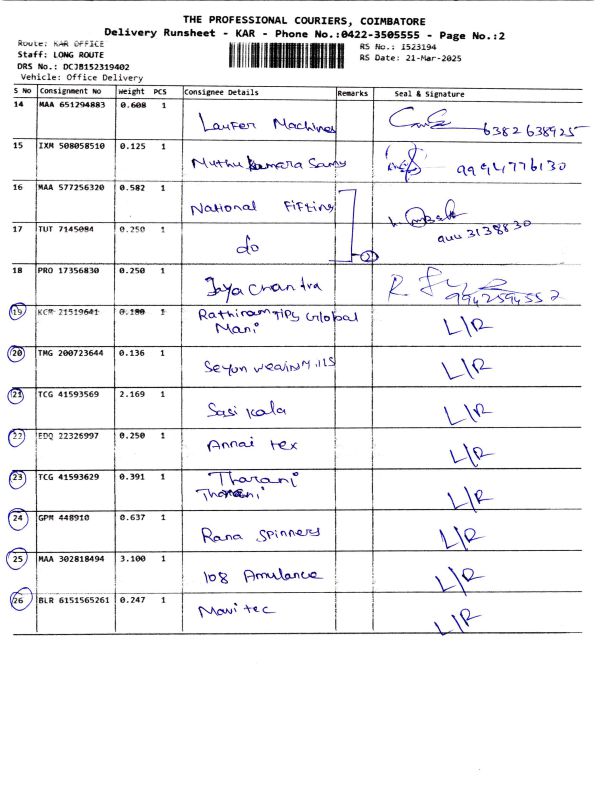 THE PROFESSIONAL COURIERS, COIMBATORE
Delivery Runsheet - KAR - Phone No.:0422-3505555 - Page No.:2
Route: KAR OFFICE
RS No.: I523194
Staff: LONG ROUTE
RS Date: 21-Mar-2025
DRS No.: DCJB152319402
Vehicle: Office Delivery
S No Consignment No Weight PCS Consignee Details Remarks Seal & Signature
14 MAA 651294883 0.608 1 Laufer Machines 6382638925
15 IXM 508058510 0.125 1 Muthu Kumara Samy 9994776130
16 MAA 577256320 0.582 1 National Fifting
17 TUT 7145084 0.250 1 do 2 3138830
18 PRO 17356830 0.250 1 Jaya Chandra 9942594552
19 KCR 21519641 0.180 1 Global L/R
Mani
20 TMG 200723644 0.136 1 L/R
21 TCG 41593569 2.169 1 Sasi kala L/R
22 EDQ 22326997 0.250 1 Annai tex L/R
23 TCG 41593629 0.391 1 Tharani L/R
Tharani
24 GPM 448910 0.637 1 Rana Spinners L/R
25 MAA 302818494 3.100 1 108 Amulance L/R
26 BLR 6151565261 0.247 1 Mavi tec L/R